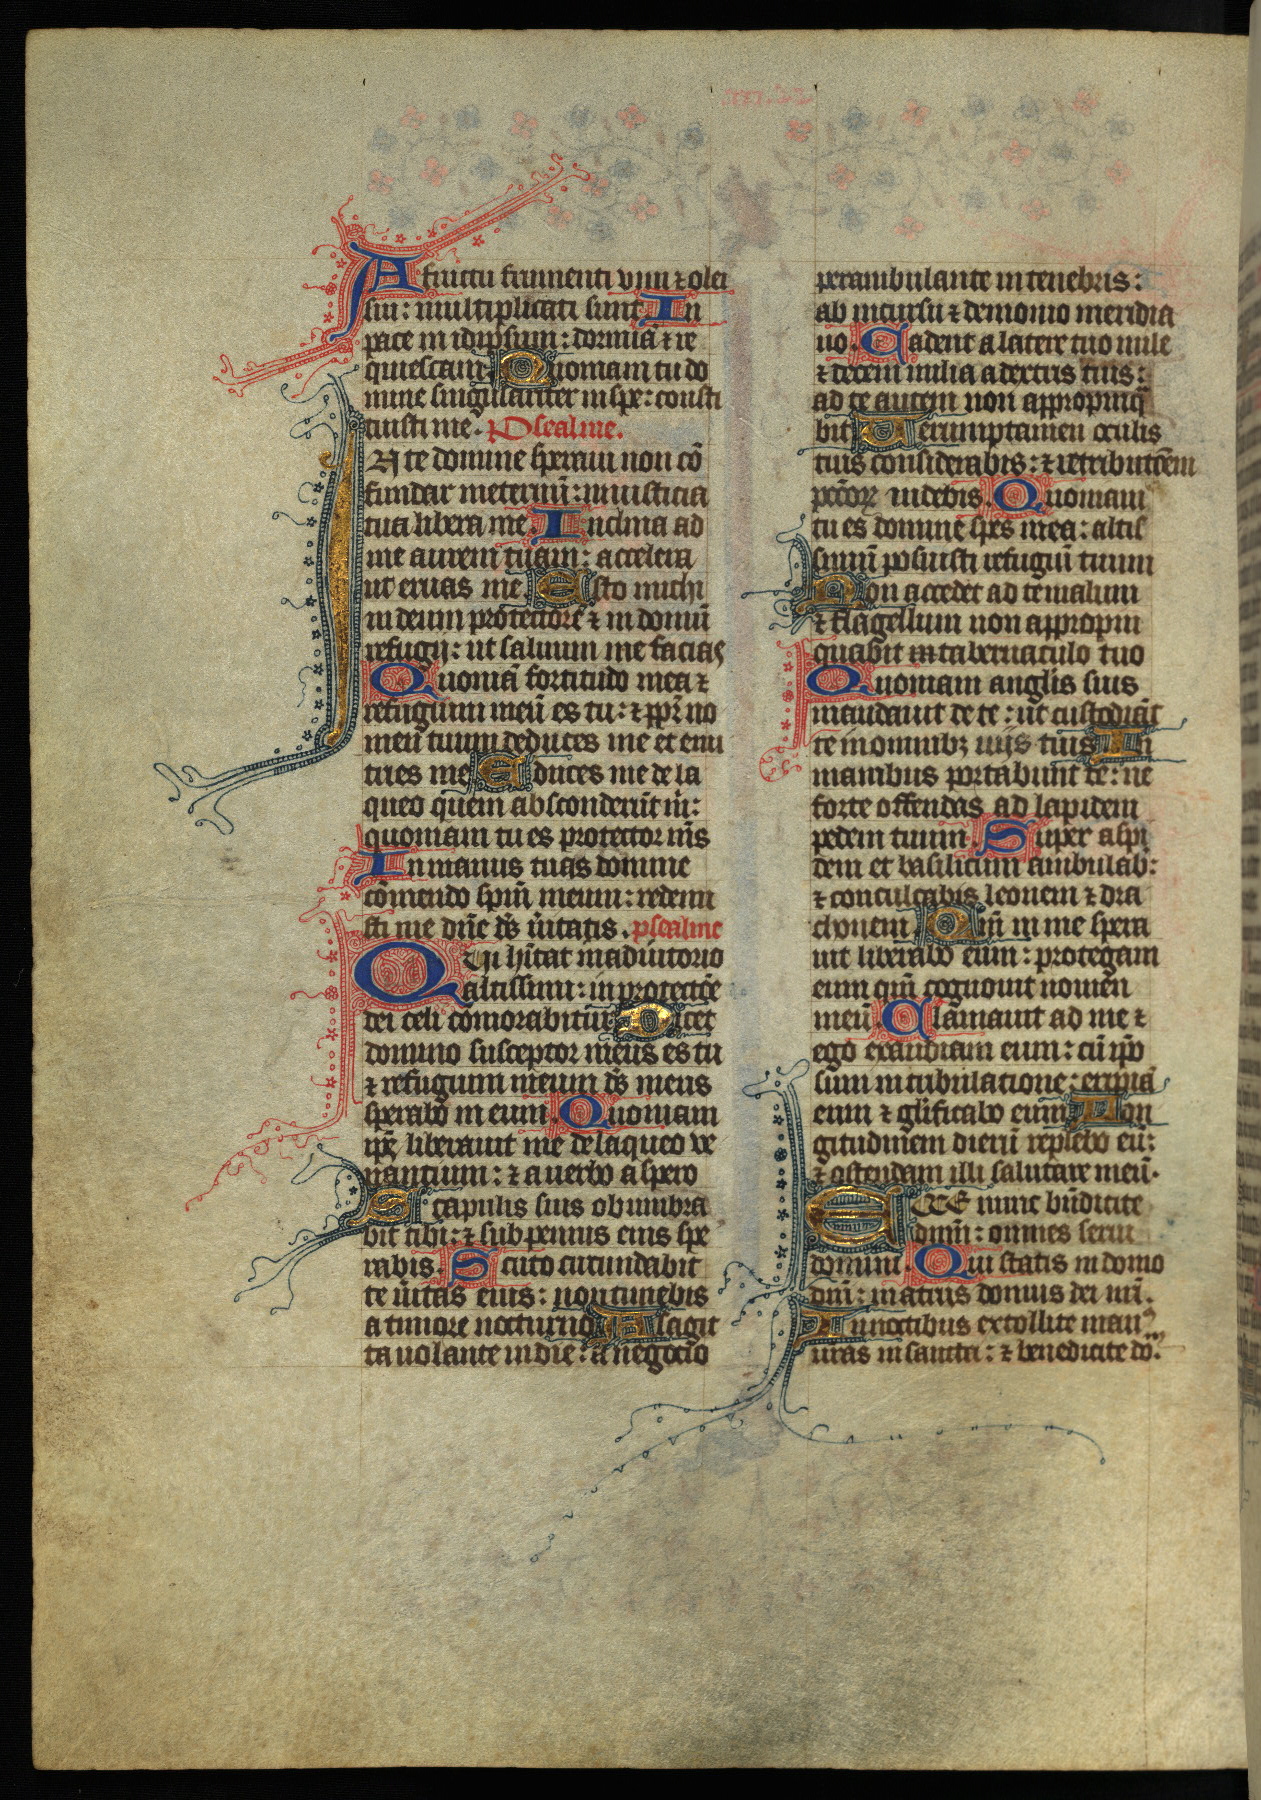 A fructu frumenti vini ⁊ olei
sui: multiplicati sunt. In
pace in idipsum: dormiā ⁊ re
quiescam. Quoniam tu do
mine singulariter in spe: consti
tuisti me. Psealme.
IN te domine speraui non cō
fundar meternū: in iusticia
tua libera me. Inclina ad
me aurem tuam: accelera
ut eruas me. Esto michi
in deum protectorē ⁊ in domū
refugij: ut saluum me facias
Quoniā fortitudo mea ⁊
refugium meū es tu: ⁊ ꝓpr̄ no
men tuum deduces me et enu
tries me. Educes me de la
queo quem absconderūt m̄:
quoniam tu es protector m̄s
In manus tuas domine
cōmendo spm̄ meum: redemi
sti me dn̄e ds̄ ūitatis. psealme
Qui hītat in adiutorio
altissimi: in protectōe
dei celi cōmorabitur. Dicet
domino susceptor meus es tu
⁊ refugium meum ds̄ meus
sperabo in eum. Quoniam
ip̄e liberauit me de laqueo ve
nantium: ⁊ a uerbo aspero
Scapulis suis obumbra
bit tibi: ⁊ sub pennis eius spe
rabis. Scuto circundabit
te ūitas eius: non timebis
a timore nocturno. A sagit
ta uolante in die: a negocio
perambulante in tenebris:
ab incursu ⁊ demonio meridia
no. Cadent a latere tuo mille
⁊ decem milia a dextris tuis:
ad te autem non appropinq̄
bit. Uerumptamen oculis
tuis considerabis: ⁊ retributōem
pecc̄oꝝ uidebis. Quoniam
tu es domine spes mea: altis
simū posuisti refugiū tuum
Non accedet ad te malum
⁊ flagellum non appropin
quabit in tabernaculo tuo
Quoniam anglis suis
mandauit de te: ut custodiāt
te in omnibꝫ uijs tuis. In
manibus portabunt te: ne
forte offendas ad lapidem
pedem tuum. Super aspi
dem et basilicum ambulab:
⁊ conculcabis leonem ⁊ dra
chonem. Qm̄ in me spera
uit liberabo eum: protegam
eum qm̄ cognouit nomen
meū. Clamauit ad me ⁊
ego exaudiam eum: cū ip̄o
sum in tribulatione: eripiā
eum ⁊ glīficabo eum. Lon
gitudinem dierū replebo eū:
⁊ ostendam illi salutare meū.
ECCE nunc bn̄dicite
domī: omnes serui
domini. Qui statis in domo
dn̄i: in atriis domus dei nr̄i.
In noctibus extollite man⁹
uras in sancta: ⁊ benedicite dō.